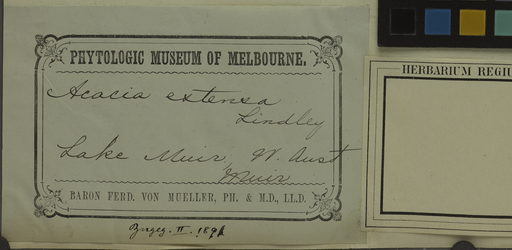 PHYTOLOGIC MUSEUM OF MELBOURNE.
Acacia extensa
Lindley
Lake Muir, W. Aust
Muir
BARON FERD. VON MUELLER, PH. & M.D., LL.D.
II 1891
HERBARIUM REGIU